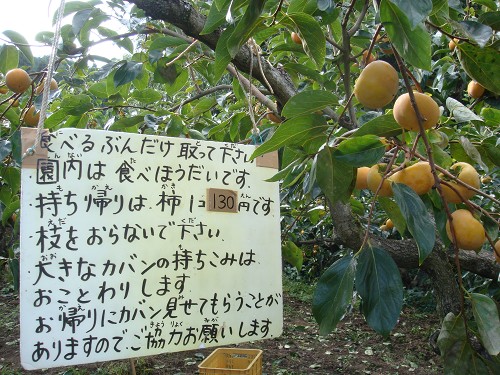 食べるぶんだけ取って下さい
園内は食べほうだいです。
持ち帰りは柿1コ130円です
枝をおらないで下さい。
大きなカバンの持ちこみは、
おことわりします。
お帰りにカバン見せてもらうことが
ありますのでご協力お願いします。